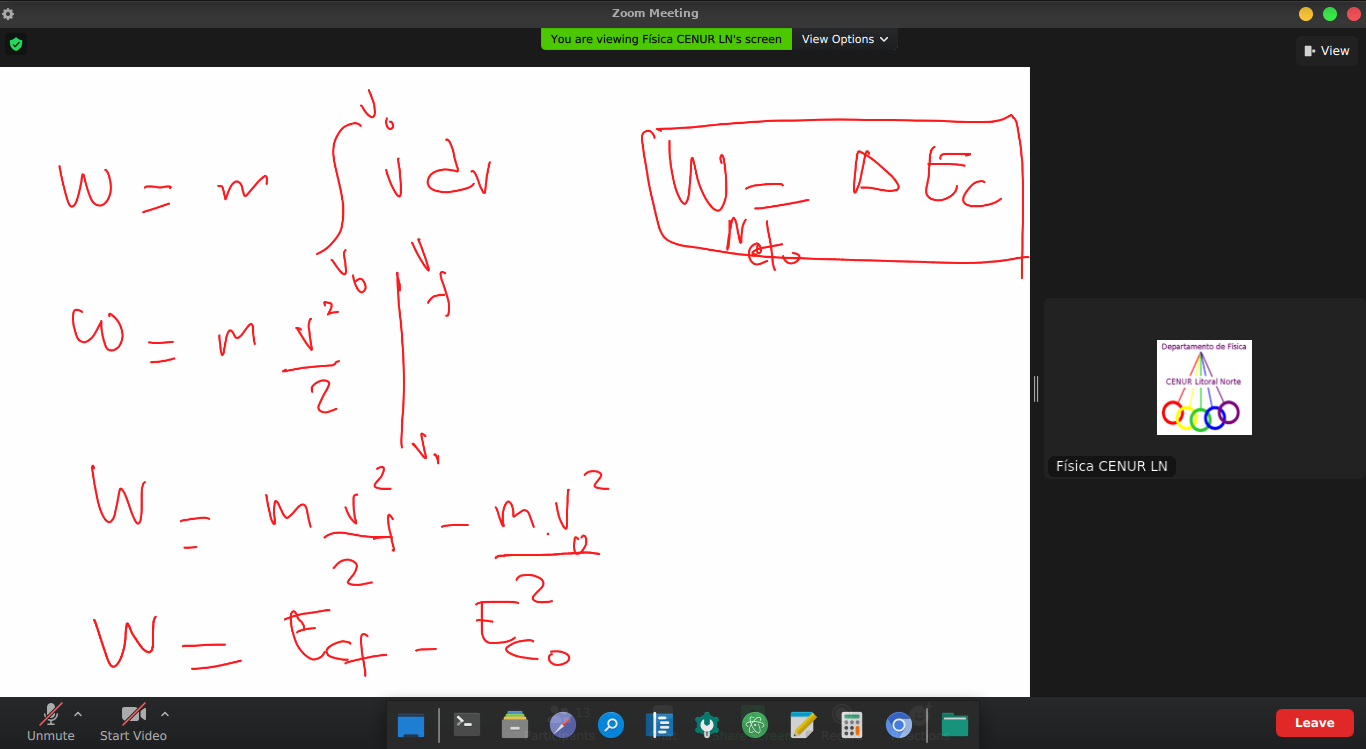 Zoom Meeting
You are viewing Física CENUR LN's screen
View Options
View
W = m ∫_{V_0}^{V_0} V dV
W_{Neto} = Δ E_c
W = m V²/2 |_{V_1}^{V_f}
W = m V_f²/2 - m.V_0²/2
W = E_{cf} - E_{c0}
Departamento de Física
CENUR Litoral Norte
Física CENUR LN
Unmute
Start Video
Participants
Leave